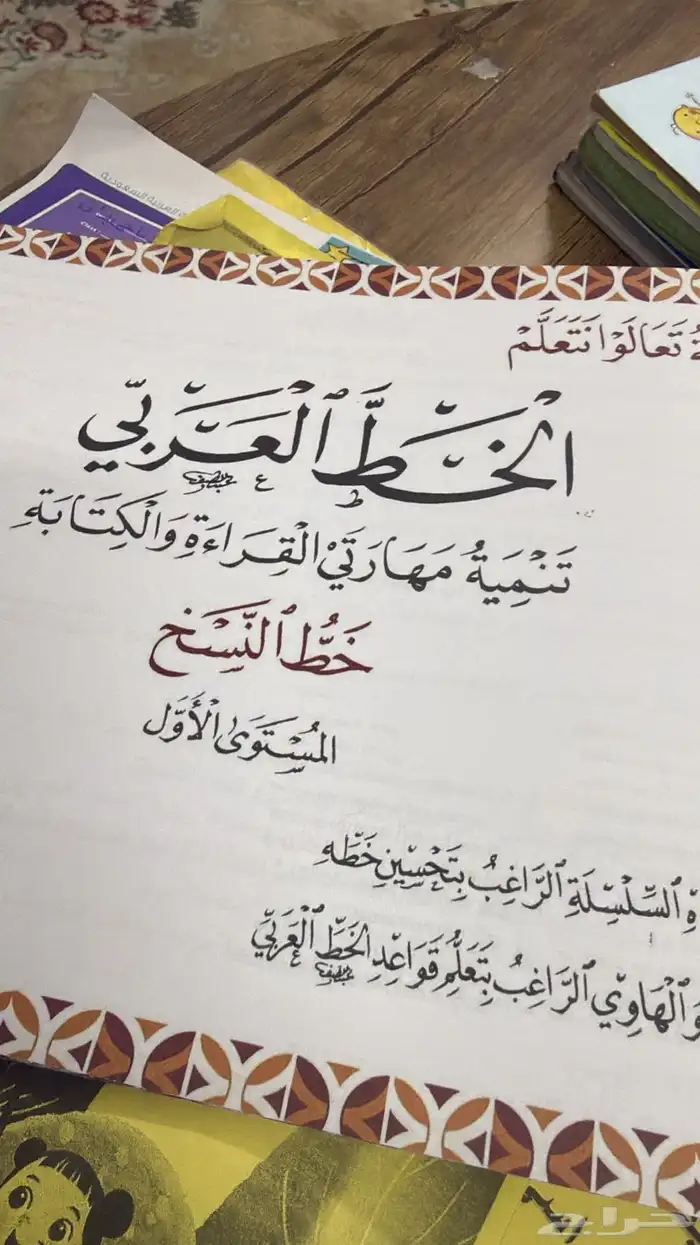 العربية السعودية
تَعَالَوْا نَتَعَلَّمْ
الْخَطَّ الْعَرَبِيّ
تَنْمِيَةُ مَهَارَتَيْ الْقِرَاءَةِ وَالْكِتَابَةِ
خَطُّ النَّسْخ
الْمُسْتَوَى الْأَوَّل
السِّلْسِلَةِ الرَّاغِبُ بِتَحْسِينِ خَطِّهِ
وَالْهَاوِي الرَّاغِبُ بِتَعَلُّمِ قَوَاعِدِ الْخَطِّ الْعَرَبِيّ
حراج